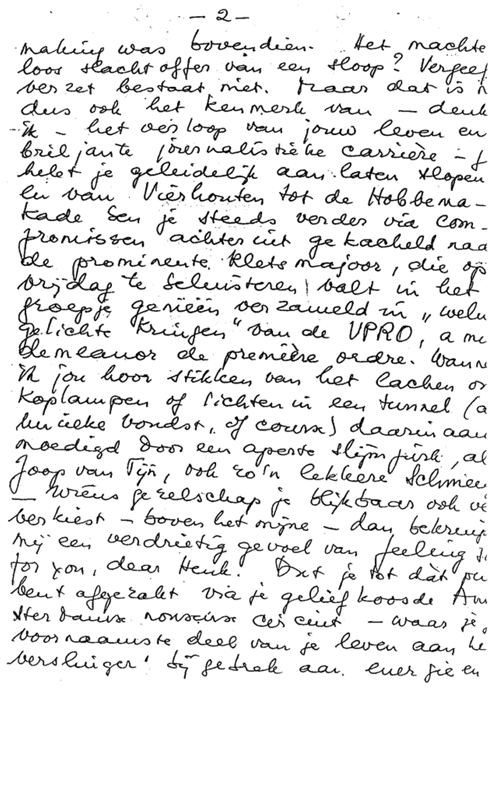 - 2 -
making was bovendien. Het machte
loos slachtoffer van een sloop? Vergeef
verzet bestaat niet. Maar dat is
dus ook het kenmerk van - denk
ik - het verloop van jouw leven en
briljante journalistieke carrière -
hebt je geleidelijk aan laten slopen
en van Vierhouten tot de Hobbema-
kade ben je steeds verder via com-
promissen achteruit gekacheld naa
de prominente kletsmajoor, die op
vrijdag te schuisteren valt in het
groepje genieën verzameld in „welin
gelichte Kringen" van de VPRO, a mi
demeanor de première ordre. Wanne
ik jou hoor stikken van het lachen o
koplampen of lichten in een tunnel (a
unieke vondst, of course) daarin aan
moedigd door een aperte slijmjurk, al
Joop van Tijn, ook zo'n lekkere Schmie
- wiens gezelschap je blijkbaar ook ve
verkiest - boven het mijne - dan bekruip
mij een verdrietig gevoel van feeling s
for you, dear Henk. Dat je tot dàt pu
bent afgezakt via je geliefkoosde Am
sterdamse nonsense circuit - waar je
voornaamste deel van je leven aan he
verslinger' bij gebrek aan energie en